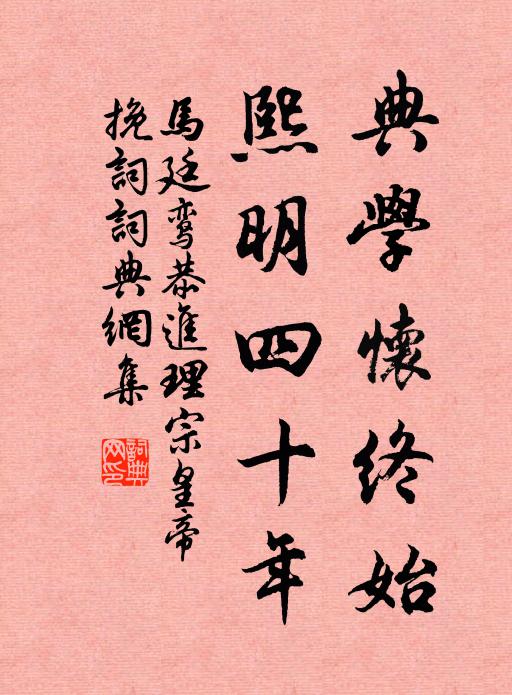 典學懷終始
熙明四十年
馬廷鸾恭進理宗皇帝
挽詞詞典網集
詞典
网印